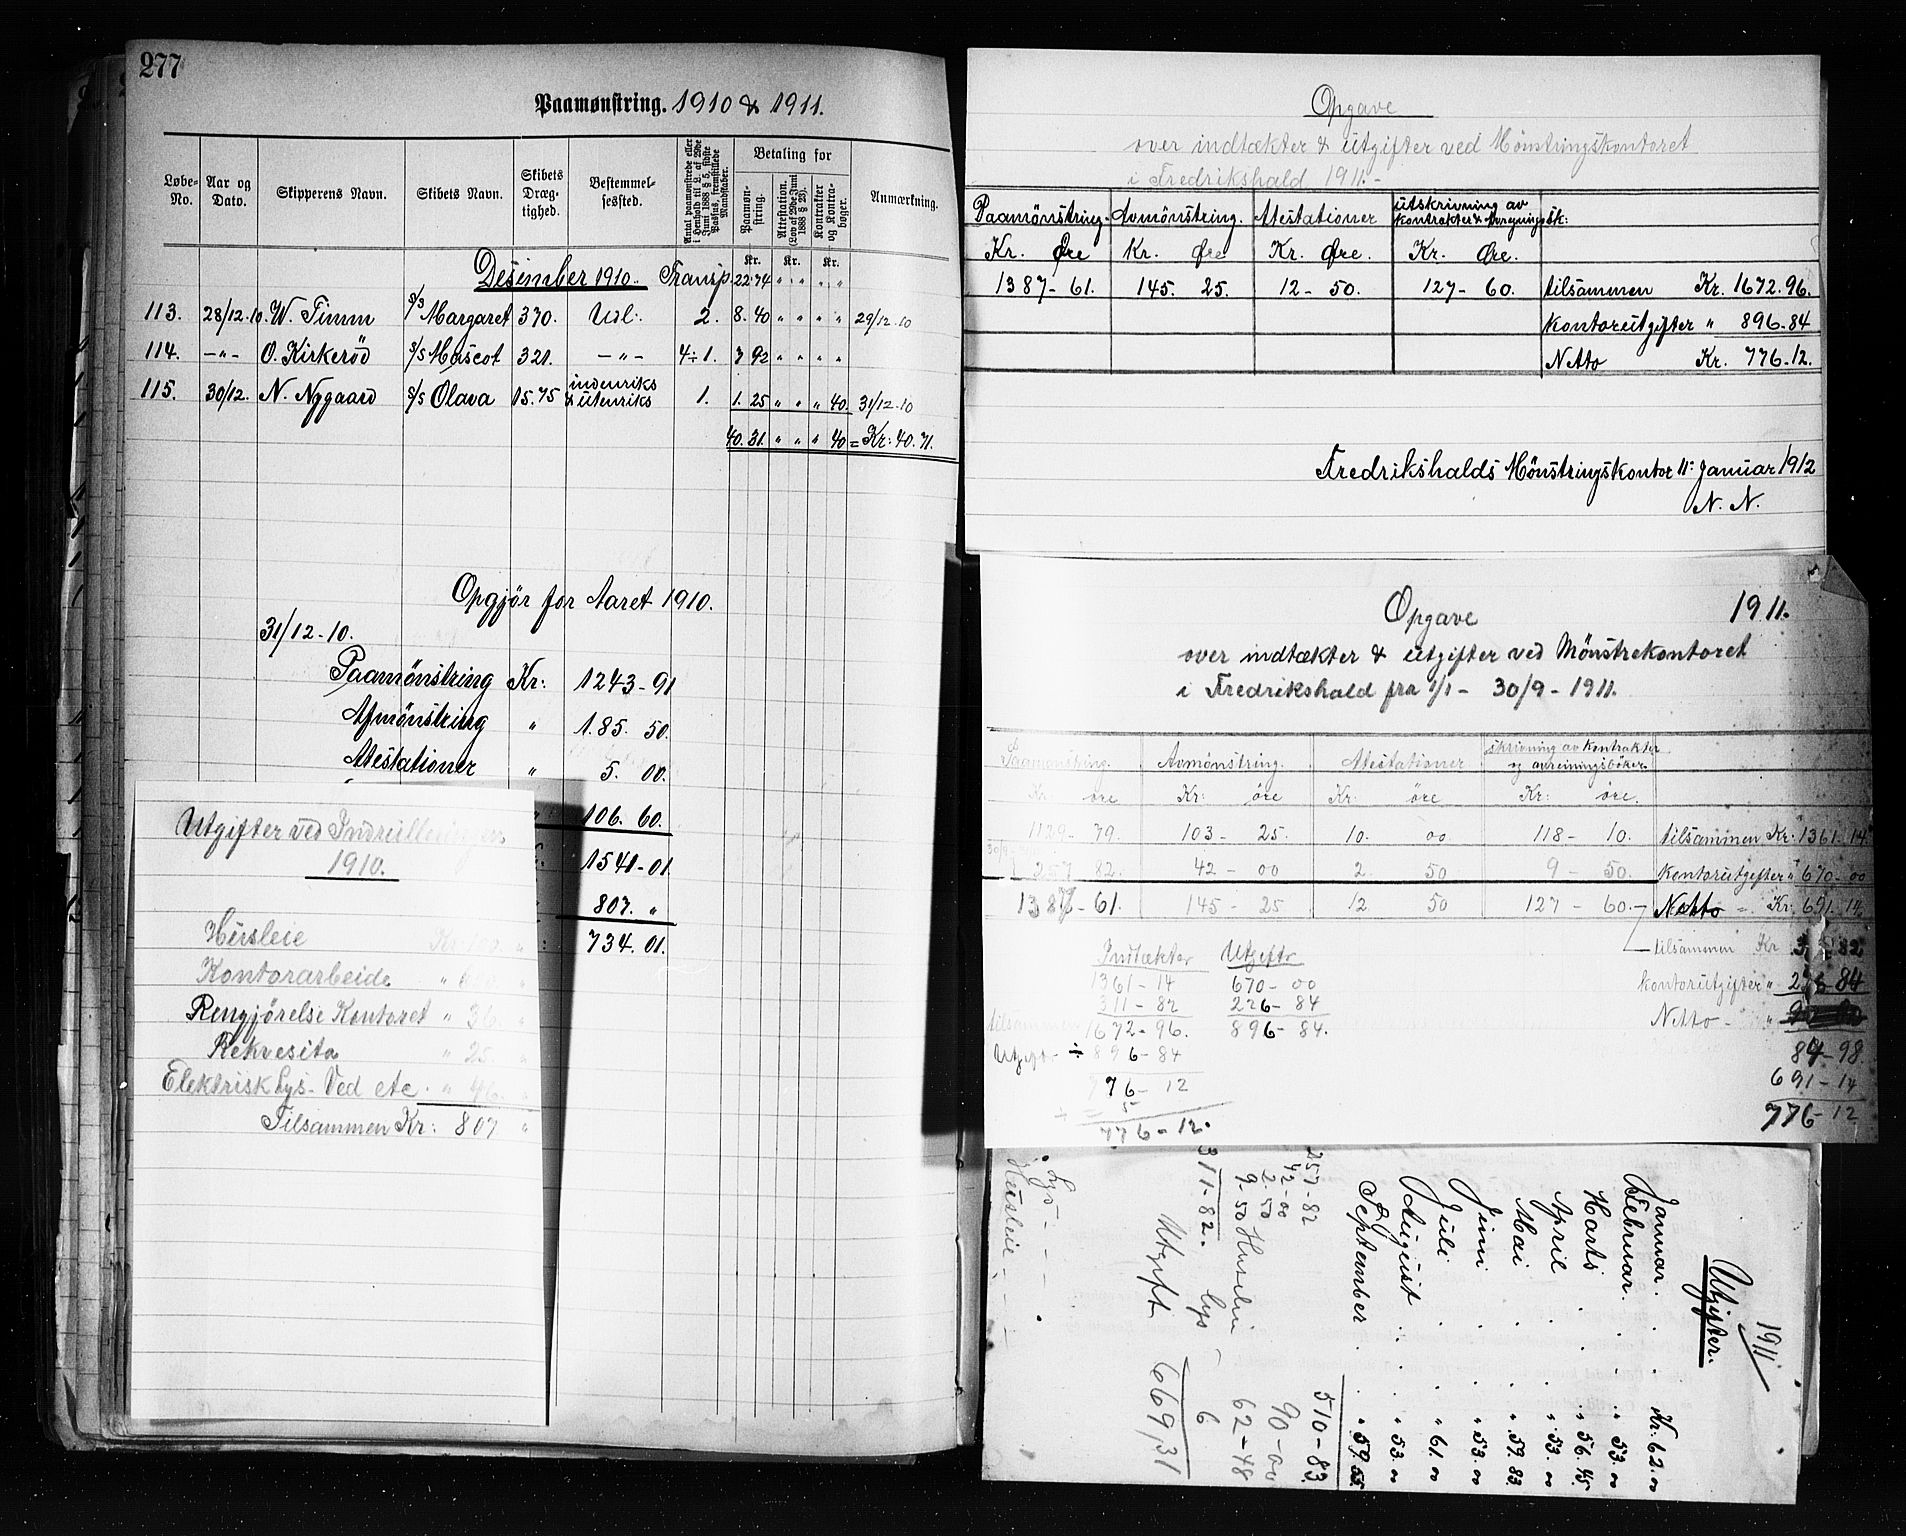 277
Paamønstring. 1910 & 1911.
Løbe-No. Aar og Dato. Skipperens Navn. Skibets Navn. Skibets Dræg-tighed. Bestemmel-sessted. Antal paamønstrede eller i Henhold til L. af 29de Juni 1888 § 5, sidste Passus, fremstillede Mandskaber. Betaling for Paamøn-string. Attestation. (Lov af 29de Juni 1888 § 23). Kontrakter og Kontra-bøger. Anmærkning.
Kr. Kr. Kr.
Desember 1910. Transp. 22.74 " " " "
113. 28/12.10. W. Timm S/S Margaret 370. Utl: 2. 8.40 " " " " 29/12.10
114. -"- O. Kirkerød S/S Mascot 321. -"- 4÷1. 7 92 " " " "
115. 30/12. N. Nygaard S/S Olava 15.75 indenriks & utenriks 1. 1.25 " " " 40. 31/12.10
40.31. " " " 40 = Kr: 40.71.
Opgjør for Aaret 1910.
31/12-10.
Paamönstring Kr: 1243-91
Afmönstring " 185. 50.
Atestationer " 5. 00.
106. 60.
1541-01.
807. "
734. 01.
Utgifter ved Indrulleringen
1910.
Husleie Kr.
Kontorarbeide "
Rengjørelse Kontoret " 36. "
Rekvesita " 25. "
Elektrisk Lys- Ved etc. " 46. "
Tilsammen Kr: 807 "
Opgave
over indtækter & utgifter ved Mönstringskontoret
i Fredrikshald 1911.-
Paamönstring. Avmönstring. Atestationer utskrivning av kontrakter & Avregningsbk:
Kr. Øre Kr. Øre Kr. Øre. Kr. Øre.
1387-61. 145. 25. 12-50. 127-60. tilsammen Kr. 1672.96.
Kontorutgifter " 896-84
Netto Kr. 776-12.
Fredrikshalds Mönstringskontor 11: Januar 1912
N. N.
Opgave 1911.
over indtækter & utgifter ved Mönstrekontoret
i Fredrikshald fra 1/1- 30/9-1911.
Paamönstring. Avmönstring. Atestationer skrivning av kontrakter og avreiningsböker
Kr. öre Kr: öre Kr: öre Kr: öre.
1129-79. 103-25. 10. 00 118-10. tilsammen Kr: 1361.14
257 82. 42-00 2. 50 9-50. Kontorutgifter " 670-00
1387-61. 145-25 12 50 127-60. Netto Kr. 691.14
tilsammen Kr 82
kontorutgifter " 226-84
Netto-
84-98.
691-14
776-12
Indtækter Utgifter
1361-14 670-00
311-82 226-84
tilsammen 1672-96. 896-84.
Utgift- ÷ 896-84
776-12
776-12.
1911
Utgifter.
Januar. Kr. 62.00
Februar. " 53.00
Marts " 56.45
April " 53.00
Mai " 59.83
Juni " 53.00
Juli " 61.00
August " 53.00
September " 59.55
510-83.
257-82
42-00
2.50 90-00
9-50 Husleie 62-48
311-82. Lys 6
Utgift 669,31
Lys-
Husleie-